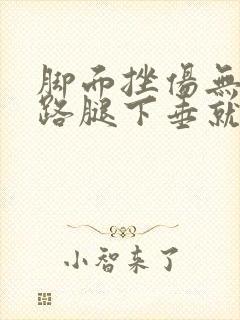 脚而挫傷無
路腿下垂就
小智来了